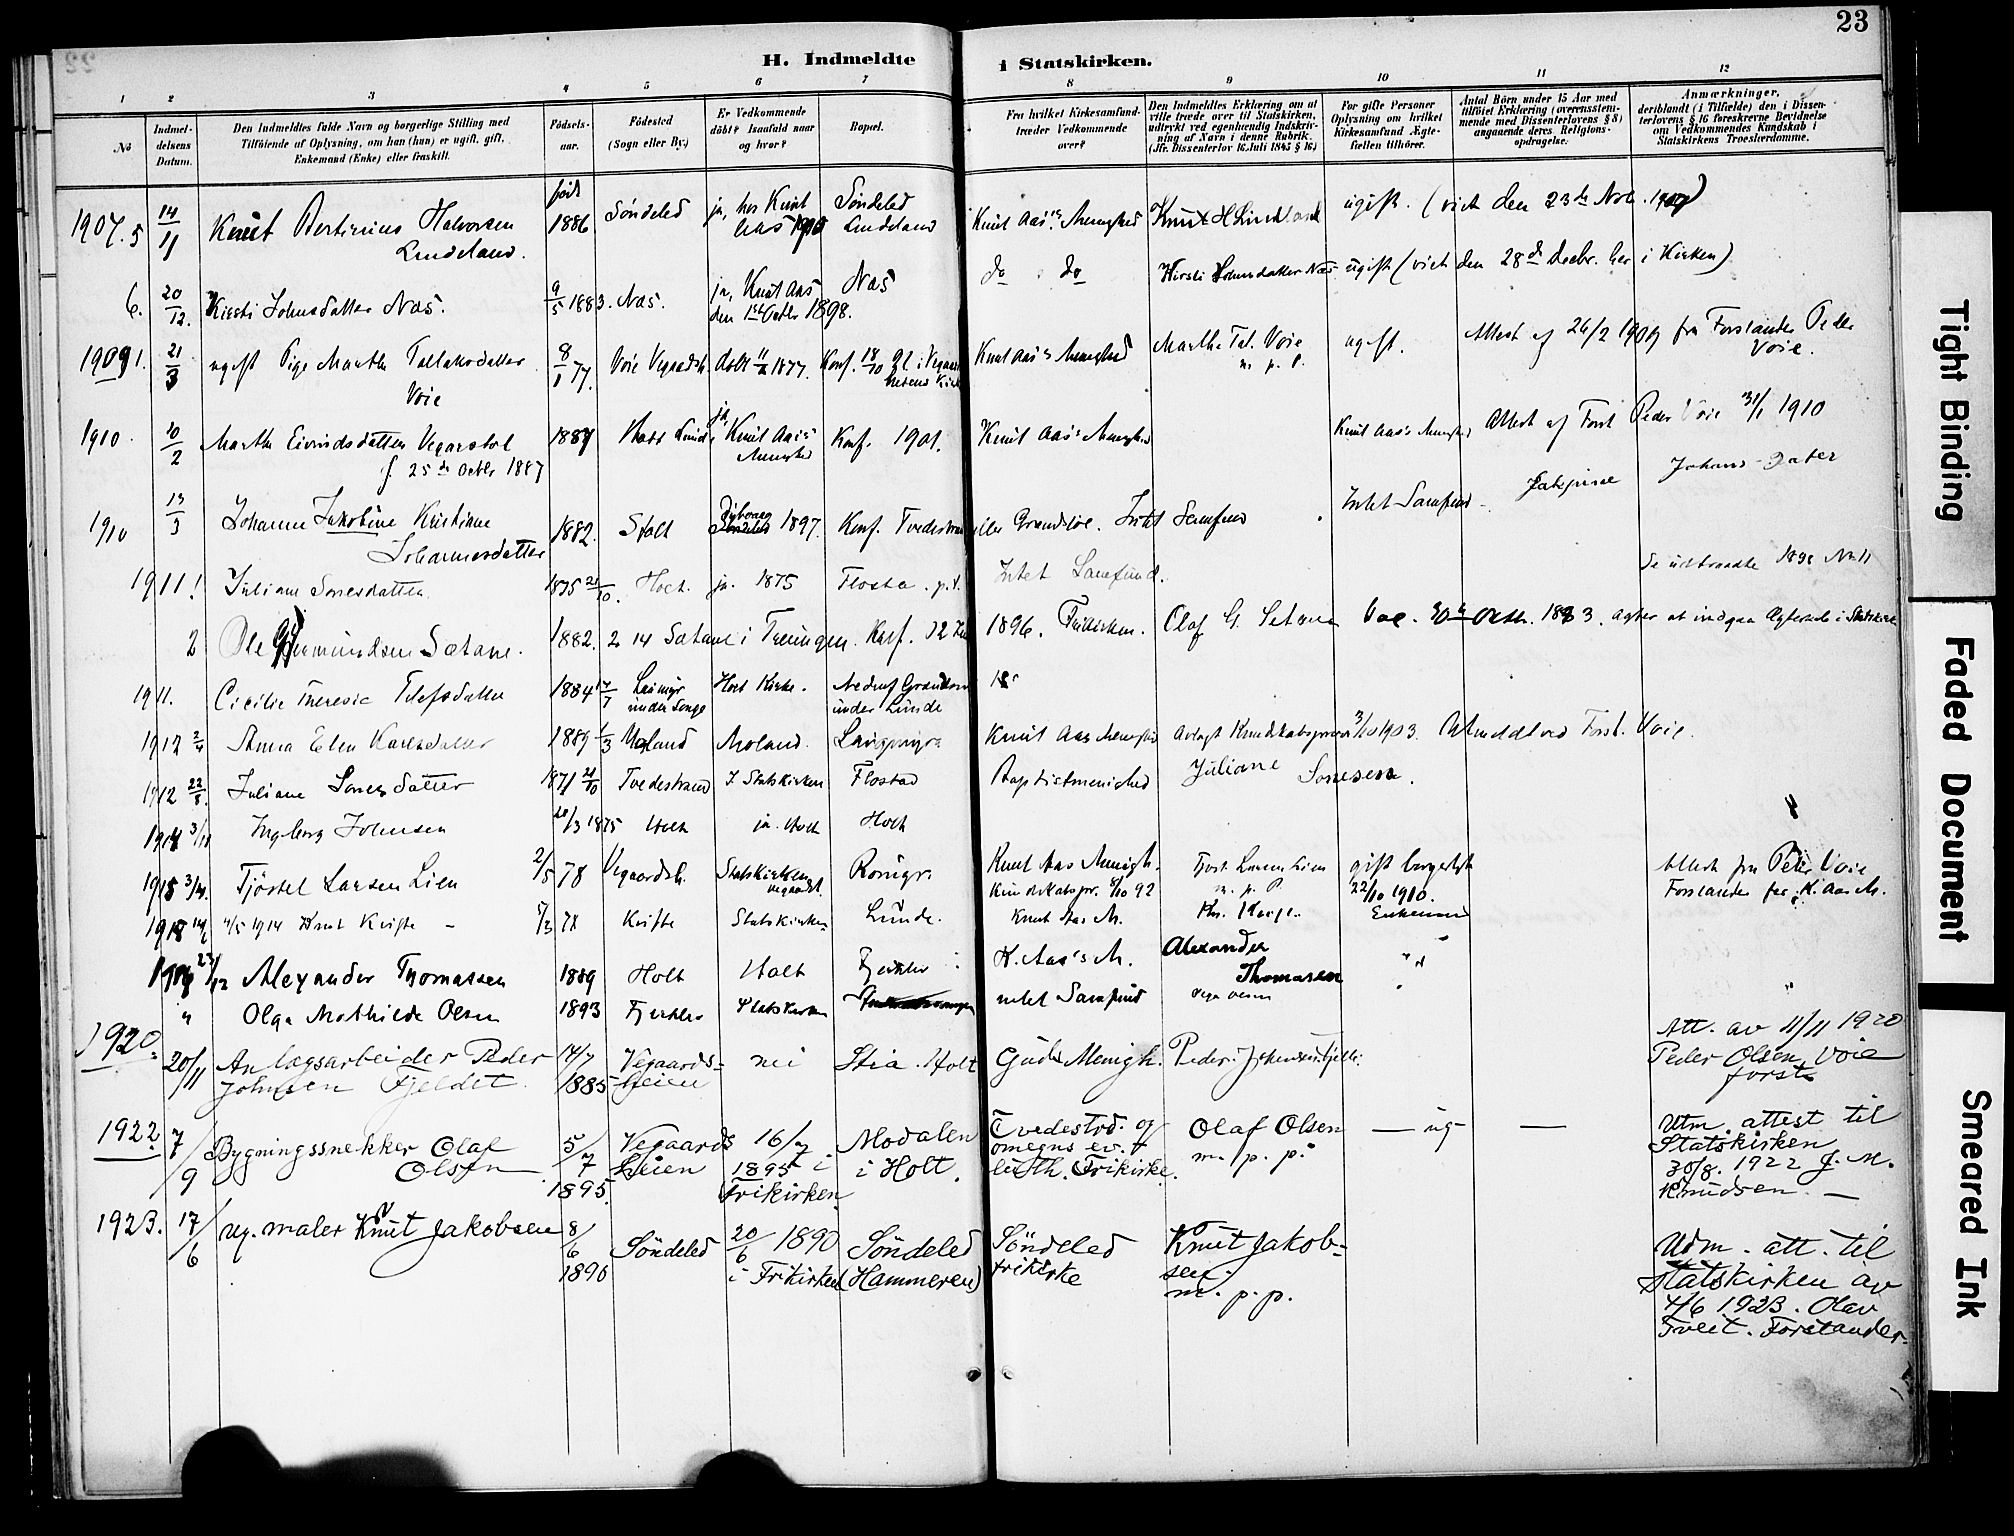 23
H. Indmeldte i Statskirken.
1 2 3 4 5 6 7 8 9 10 11 12
No
Indmeldelsens Datum.
Den Indmeldtes fulde Navn og borgerlige Stilling med
Tilföiende af Oplysning, om han (hun) er ugift, gift,
Enkemand (Enke) eller fraskilt.
Födsels-
aar.
Födested
(Sogn eller By.)
Er Vedkommende
döbt? Isaafald naar
og hvor?
Bopæl.
Fra hvilket Kirkesamfund
træder Vedkommende
over?
Den Indmeldtes Erklæring om at
ville træde over til Statskirken,
udtrykt ved egenhændig Indskriv-
ning af Navn i denne Rubrik.
(Jfr. Dissenterlov 16 Juli 1845 § 16)
For gifte Personer
Oplysning om hvilket
Kirkesamfund Ægte-
fællen tilhörer.
Antal Börn under 15 Aar med
tilföiet Erklæring (overensstem-
mende med Dissenterlovens § 8)
angaaende deres Religions-
opdragelse.
Anmærkninger,
deriblandt (i Tilfælde) den i Dissen-
terlovens § 16 foreskrevne Bevidnelse
om Vedkommendes Kundskab i
Statskirkens Troeslærdomme.
1907. 5 14/11 Knut Bertinius Halvorsen Lindeland. född 1886 Söndeled ja, hos Knut Aas Söndeled Lindeland Knut Aas's Menighed Knut H Lindland ugift. (viet den 23de Nov. 1907)
6. 20/12. Kirsti Johnsdatter Næs. 9/5 1883. Næs. ja, Knut Aas den 1ste Octbr 1898. Næs do do Kirsti Johnsdatter Næs ugift (viet den 28de Decbr. her i Kirken)
1909 1. 21/3 ugift Pige Marthe Tallaksdatter Voie 8/1 77. Voie Vegardsh. döbt 11/2 1877. Konf. 18/10 91 i Vegaardsheiens Kirke Knut Aas's Menighed Marthe Tal. Voie m. p. p. ugift. Attest af 26/2 1909 fra Forstander Peder Voie.
1910. 10/2 Marthe Eivindsdatter Vegarstol f. 25de Octbr 1887 1887 ja, i Knut Aas's Menighed Konf. 1901. Knut Aas's Menighed Knut Aas's Menighed Attest af Forst Peder Voie 31/1 1910
1910 13/3 Johanne Jakobine Kristiane Johannesdatter 1882. Holt Dybvaag 1897. Konf. Tvedestrand Intet Samfund Intet Samfund Jakobine Johans-Dater
1911! Juliane Sørensdatter 1875 21/10. Holt. ja. 1875 Flosta. p.t. Intet Samfund. Se udtraadte 1898 No 11
2 Ole Gjermundsen Sætane. 1882. 2/4 Sætane i Treungen. Konf. 1896. Frikirken. Olaf G. Setane agter at indgaa Ægteskab i Statskirke
1911. Cicilie Theresie Tellefsdatter 1884 17/7 Holt Kirke. under Lunde
1912 2/4 Anna Elen Karlsdatter 1889 1/3 Moland Moland. Langmyr Knut Aas Menighed avlagt Kundskabspröve 3/10 1903. Udmeldt ved Forst. Voie.
1912 22/8. Juliane Sørensdatter 1871 21/10 Tvedestrand I Statskirken Flostad Baptistmenighed Juliane Sørensen.
1914 3/11 Ingeborg Johnsen 20/3 1875 Holt ja. Holt Holt
1915 3/4. Tjöstel Larsen Lien 2/5 78 Vegaardsh. Statskirken Vegaardsh. Romyr. Knut Aas Menigh. Kundskabspr. 8/10 92 Tjöst. Larsen Lien m. p. P. gift borgerligt 22/10 1910. Attest fra Peder Voie Forstander for K. Aas M.
1918 4/5 1914 Knut Kvifte 5/3 78 Kvifte Statskirken Lunde. Knut Aas M. Enkemand
23/12 Alexander Thomassen 1889 Holt Holt Fjeldtn K. Aas's M. Alexander Thomassen
" Olga Mathilde Olsen 1893 Statskirken intet Samfund Olga Olsen
1920. 20/11 Anlægsarbeider Peder Johnsen Fjeldet. 14/7 1885 Vegaards-heien nei Stia. Holt Guds Menigh. Peder Johnsen Fjeldet Att. av 11/11 1920 Peder Olsen Voie forst.
1922 7/9 Bygningssnekker Olaf Olsen 5/7 1895. Vegaards heien 16/7 1895 i Frikirken Modalen i Holt. Tvedestrd. og omegns ev. luth. Frikirke. Olaf Olsen m. p. p. — ug — — Utm. attest til Statskirken 30/8. 1922 J. M. Knudsen. —
1923. 17/6 ug. maler Knut Jakobsen 8/6 1890 Söndeled 20/6 1890 i Frikirken Söndeled (Hammeren) Söndeled frikirke Knut Jakob-sen. m. p. p. Udm. att. til Statskirken av 4/6 1923. Olav Tveit. Forstander.
Tight Binding
Faded Document
Smeared Ink